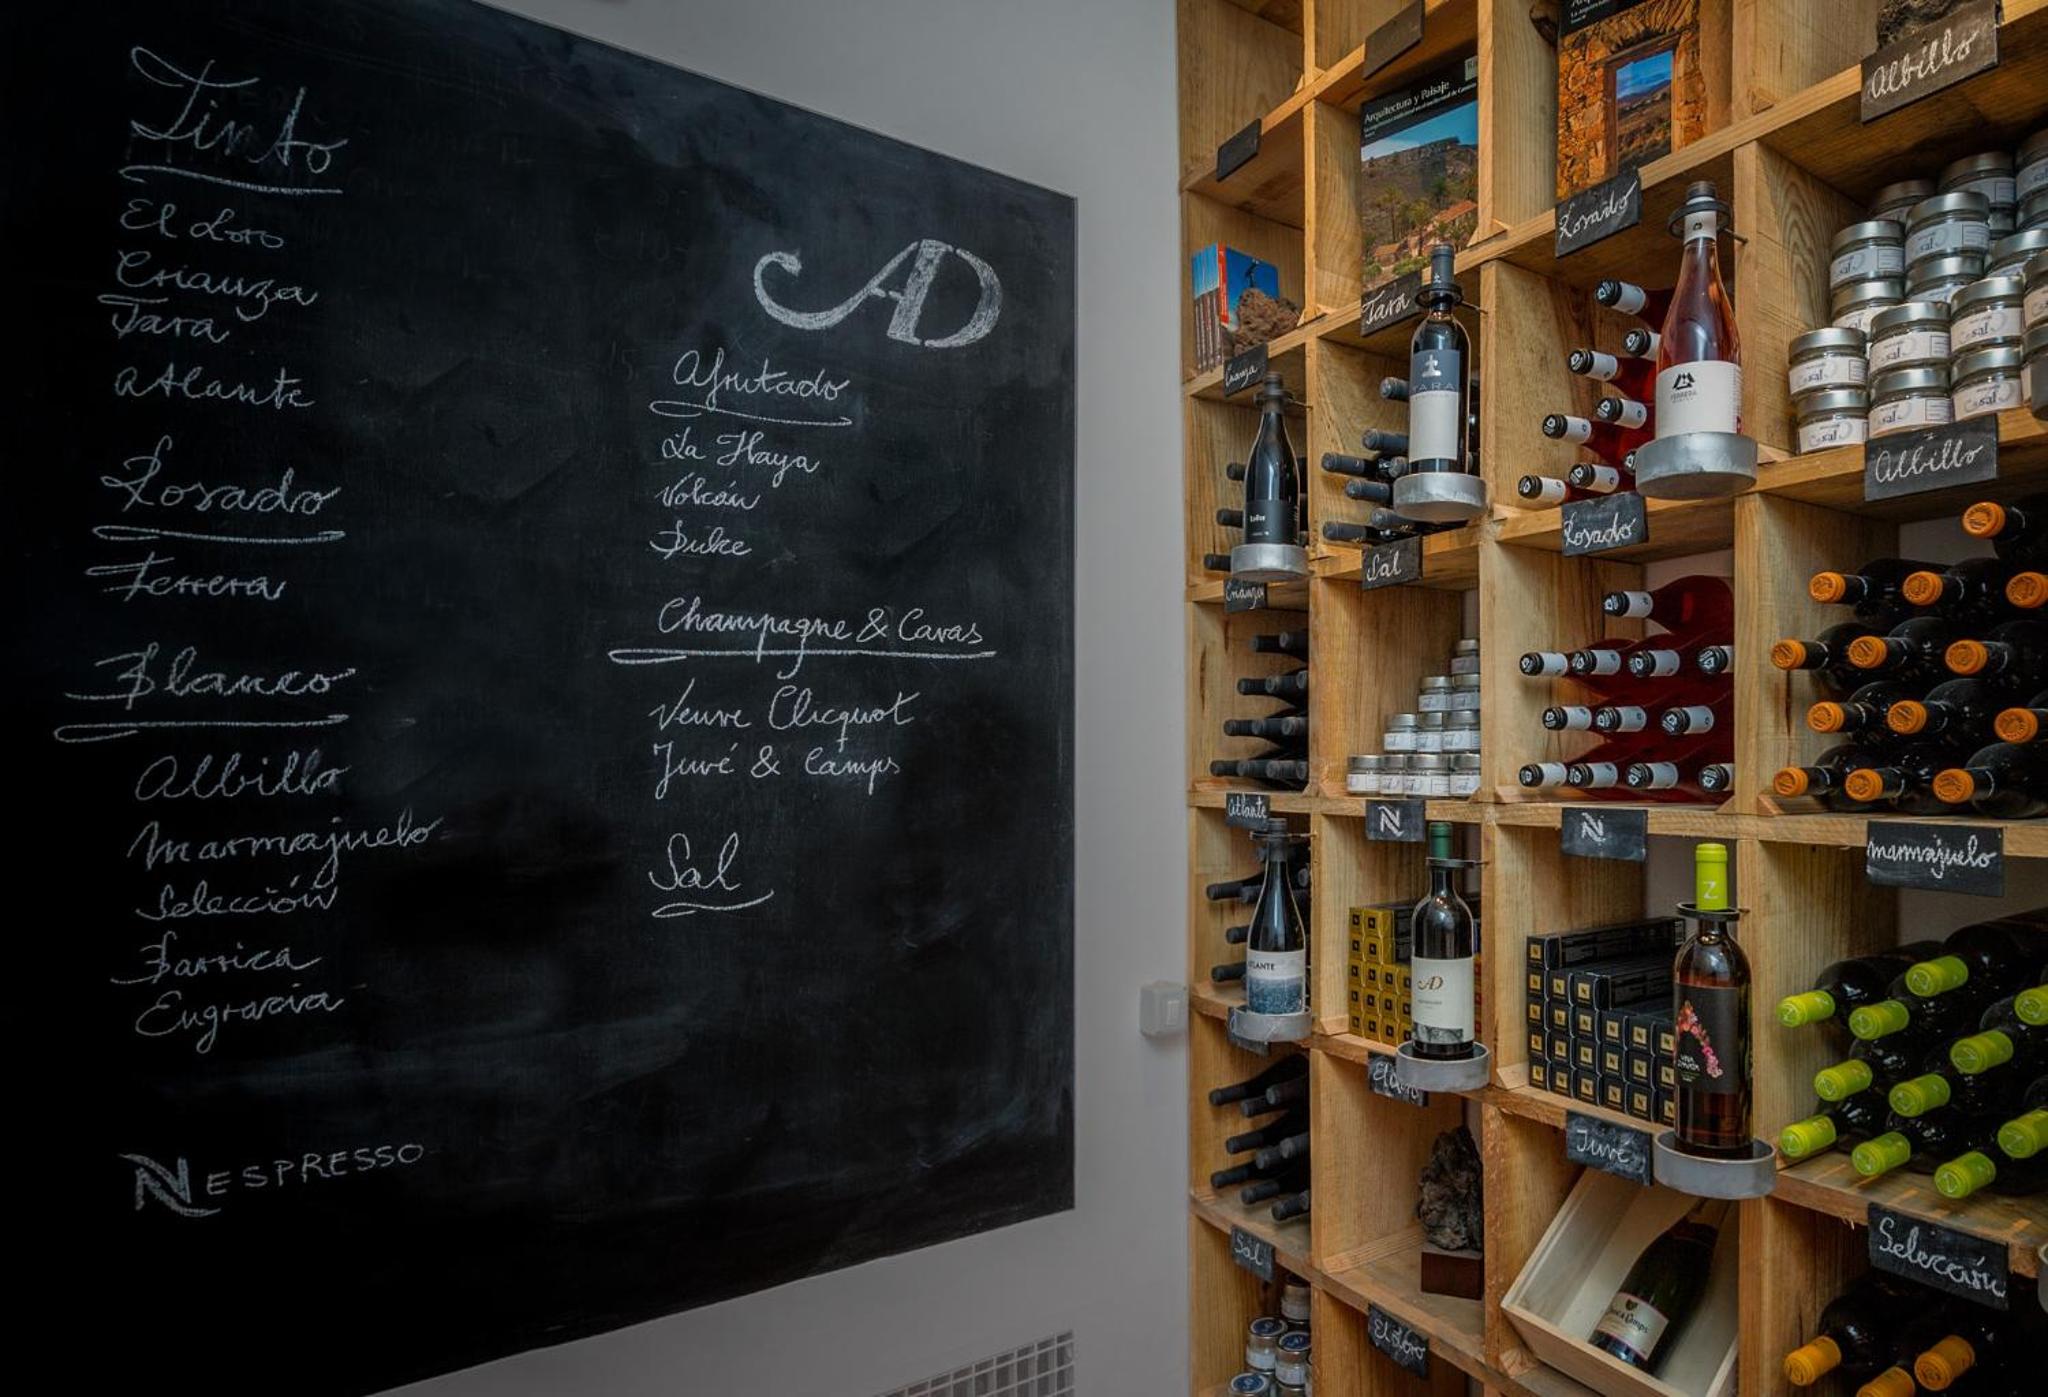 Tinto
El Loro
Crianza
Tara
Atlante
Rosado
Ferrera
Blanco
Albillo
Marmajuelo
Selección
Barrica
Engracia
NESPRESSO
AD
Afrutado
La Haya
Volcán
Dulce
Champagne & Cavas
Veuve Clicquot
Juvé & Camps
Sal
Arquitectura y Paisaje
Albillo
Rosado
Tara
Crianza
TARA
FERRERA
sal
Albillo
Rosado
Sal
Crianza
Atlante
N
N
Marmajuelo
Z
ATLANTE
AD
El Loro
Juvé
Selección
Sal
El Loro
Juvé & Camps